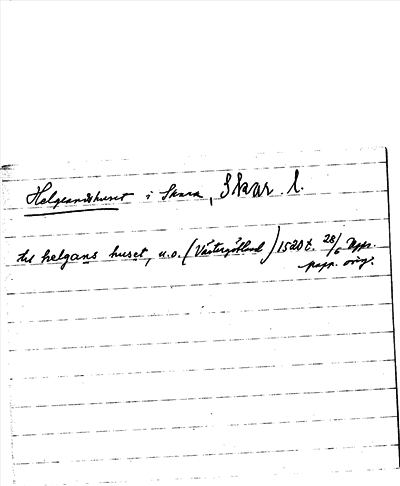 Helgeandshuset i Skara, Skar. l.
hel helgans huset, u.o. (Västergötland) 1520 t. 28/6 Upps.
papp. orig.